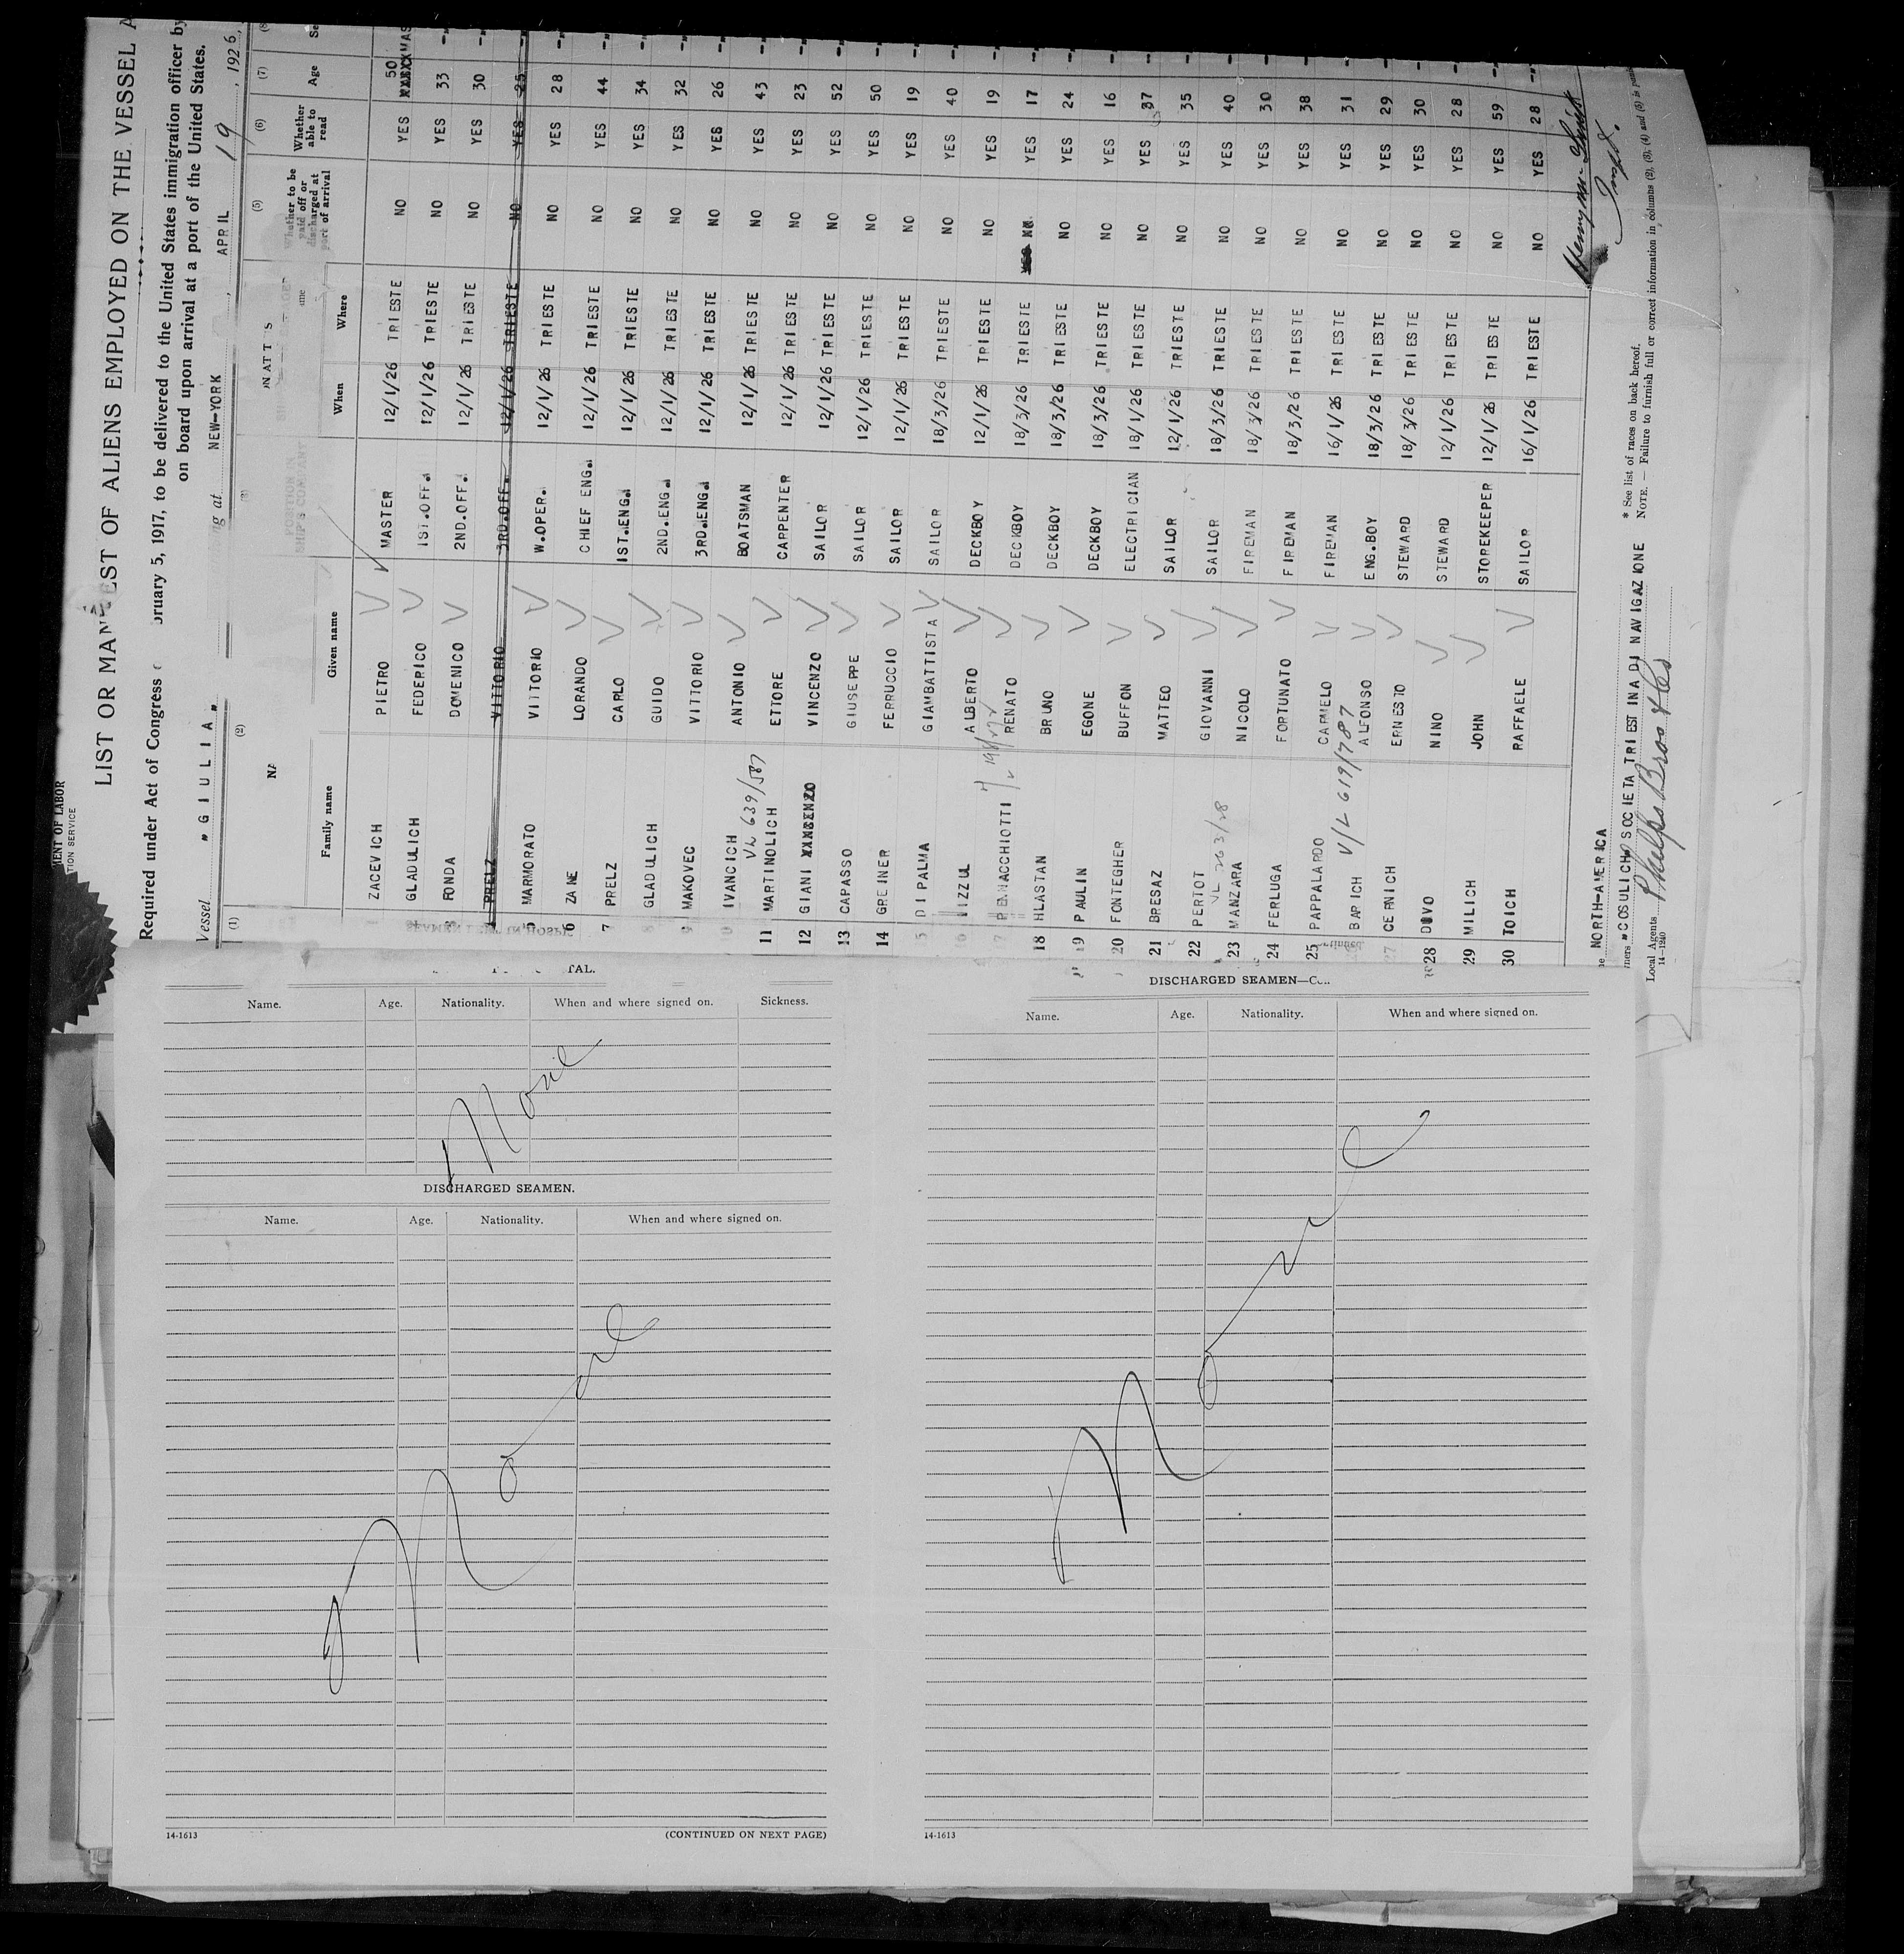 MENT OF LABOR
TION SERVICE
LIST OR MANIFEST OF ALIENS EMPLOYED ON THE VESSEL A
Required under Act of Congress bruary 5, 1917, to be delivered to the United States immigration officer by
on board upon arrival at a port of the United States.
Vessel "GIULIA" ng at NEW-YORK, APRIL 19, 1926,
(1) (2) (5) (6) (7) (8)
Family name Given name POSITION IN SHIP'S COMPANY When Where Whether to be paid off or discharged at port of arrival Whether able to read Age Se
ZACEVICH PIETRO MASTER 12/1/26 TRIESTE NO YES 50 MAS
GLADULICH FEDERICO 1ST.OFF. 12/1/26 TRIESTE NO YES 33 -"-
FONDA DOMENICO 2ND.OFF. 12/1/26 TRIESTE NO YES 30 -"-
PRELZ VITTORIO 3RD.OFF. 12/1/26 TRIESTE NO YES 25 -"-
5 MARMORATO VITTORIO W.OPER. 12/1/26 TRIESTE NO YES 28 -"-
6 ZANE LORANDO CHIEF ENG. 12/1/26 TRIESTE NO YES 44 -"-
7 PRELZ CARLO 1ST.ENG. 12/1/26 TRIESTE NO YES 34 -"-
8 GLADULICH GUIDO 2ND.ENG. 12/1/26 TRIESTE NO YES 32 -"-
9 MAKOVEC VITTORIO 3RD.ENG. 12/1/26 TRIESTE NO YES 26 -"-
10 IVANCICH ANTONIO BOATSMAN 12/1/26 TRIESTE NO YES 43 -"-
VL 639/587
11 MARTINOLICH ETTORE CARPENTER 12/1/26 TRIESTE NO YES 23 -"-
12 GIANI VINCENZO SAILOR 12/1/26 TRIESTE NO YES 52 -"-
13 CAPASSO GIUSEPPE SAILOR 12/1/26 TRIESTE NO YES 50 -"-
14 GREINER FERRUCCIO SAILOR 12/1/26 TRIESTE NO YES 19 -"-
5 DI PALMA GIAMBATTISTA SAILOR 18/3/26 TRIESTE NO YES 40 -"-
IZZUL ALBERTO DECKBOY 12/1/26 TRIESTE NO YES 19 -"-
PENNACCHIOTTI RENATO DECKBOY 18/3/26 TRIESTE YES NO YES 17 -"-
18 HLASTAN BRUNO DECKBOY 18/3/26 TRIESTE NO YES 24 -"-
19 PAULIN EGONE DECKBOY 18/3/26 TRIESTE NO YES 16 -"-
20 FONTEGHER BUFFON ELECTRICIAN 18/1/26 TRIESTE NO YES 37 -"-
21 BRESAZ MATTEO SAILOR 12/1/26 TRIESTE NO YES 35 -"-
22 PERTOT GIOVANNI SAILOR 18/3/26 TRIESTE NO YES 40 -"-
VL 263/28
23 MANZARA NICOLO FIREMAN 18/3/26 TRIESTE NO YES 30 -"-
24 FERLUGA FORTUNATO FIREMAN 18/3/26 TRIESTE NO YES 38 -"-
25 PAPPALARDO CARMELO FIREMAN 16/1/26 TRIESTE NO YES 31 -"-
V/L 619/787
BARICH ALFONSO ENG.BOY 18/3/26 TRIESTE NO YES 29 -"-
27 CERNICH ERNESTO STEWARD 18/3/26 TRIESTE NO YES 30 -"-
28 DUVO NINO STEWARD 12/1/26 TRIESTE NO YES 28 -"-
29 MILICH JOHN STOREKEEPER 12/1/26 TRIESTE NO YES 59 -"-
30 TOICH RAFFAELE SAILOR 16/1/26 TRIESTE NO YES 28 -"-
NORTH-AMERICA
ners "COSULICH" SOCIETA TRIESTINA DI NAVIGAZIONE
Local Agents Phelps Bros & Co
14-1240
* See list of races on back hereof.
NOTE. — Failure to furnish full or correct information in columns (2), (3), (4) and (5) is
TAL.
Name. Age. Nationality. When and where signed on. Sickness.
None
DISCHARGED SEAMEN.
Name. Age. Nationality. When and where signed on.
None
14-1613 (CONTINUED ON NEXT PAGE)
DISCHARGED SEAMEN—C
Name. Age. Nationality. When and where signed on.
None
14-1613